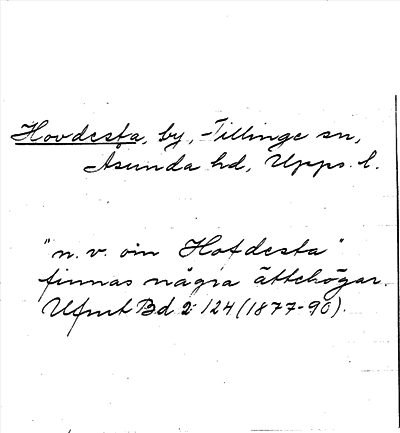 Hovdesta, by, Tillinge sn,
Åsunda hd, Upps. l.
"n. v. om Hofdesta"
finnas några ättehögar.
Ufmt Bd 2: 124 (1877-90).